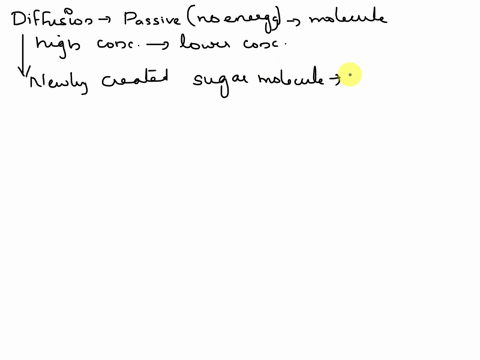 Diffusion → Passive (no energy) → molecule
high conc. → lower conc.
Newly created sugar molecule →